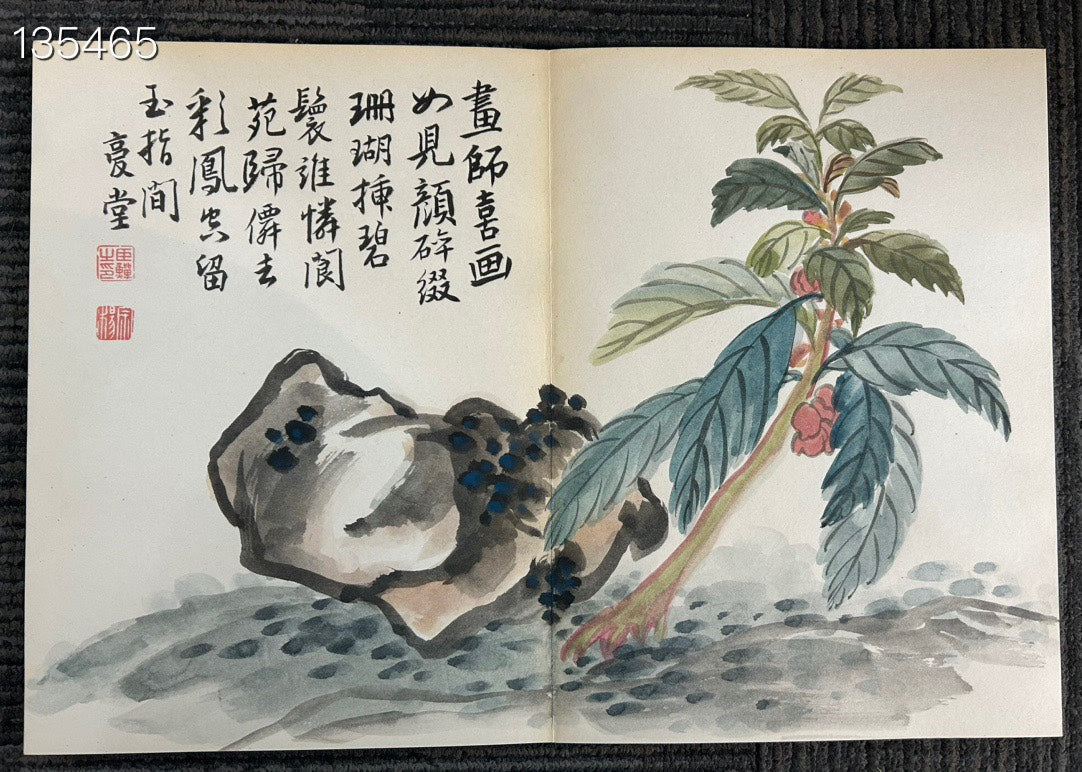 135465
畫師喜画
如見顔碎綴
珊瑚插碧
鬟誰憐閬
苑歸僊去
彩鳳空留
玉指間
憂堂